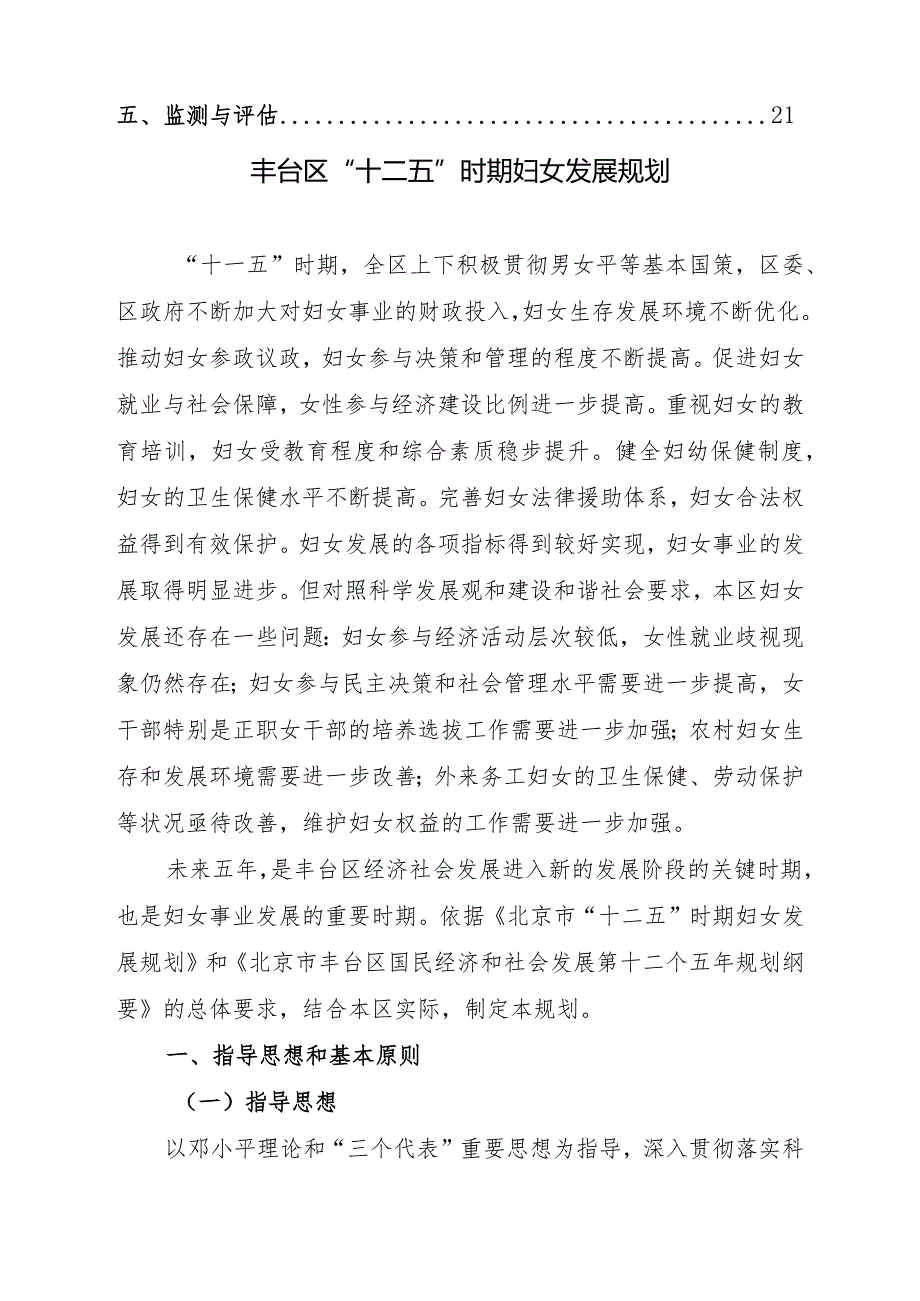 五、监测与评估..........................................21
丰台区“十二五”时期妇女发展规划
“十一五”时期，全区上下积极贯彻男女平等基本国策，区委、
区政府不断加大对妇女事业的财政投入，妇女生存发展环境不断优化。
推动妇女参政议政，妇女参与决策和管理的程度不断提高。促进妇女
就业与社会保障，女性参与经济建设比例进一步提高。重视妇女的教
育培训，妇女受教育程度和综合素质稳步提升。健全妇幼保健制度，
妇女的卫生保健水平不断提高。完善妇女法律援助体系，妇女合法权
益得到有效保护。妇女发展的各项指标得到较好实现，妇女事业的发
展取得明显进步。但对照科学发展观和建设和谐社会要求，本区妇女
发展还存在一些问题：妇女参与经济活动层次较低，女性就业歧视现
象仍然存在；妇女参与民主决策和社会管理水平需要进一步提高，女
干部特别是正职女干部的培养选拔工作需要进一步加强；农村妇女生
存和发展环境需要进一步改善；外来务工妇女的卫生保健、劳动保护
等状况亟待改善，维护妇女权益的工作需要进一步加强。
未来五年，是丰台区经济社会发展进入新的发展阶段的关键时期，
也是妇女事业发展的重要时期。依据《北京市“十二五”时期妇女发
展规划》和《北京市丰台区国民经济和社会发展第十二个五年规划纲
要》的总体要求，结合本区实际，制定本规划。
一、指导思想和基本原则
（一）指导思想
以邓小平理论和“三个代表”重要思想为指导，深入贯彻落实科